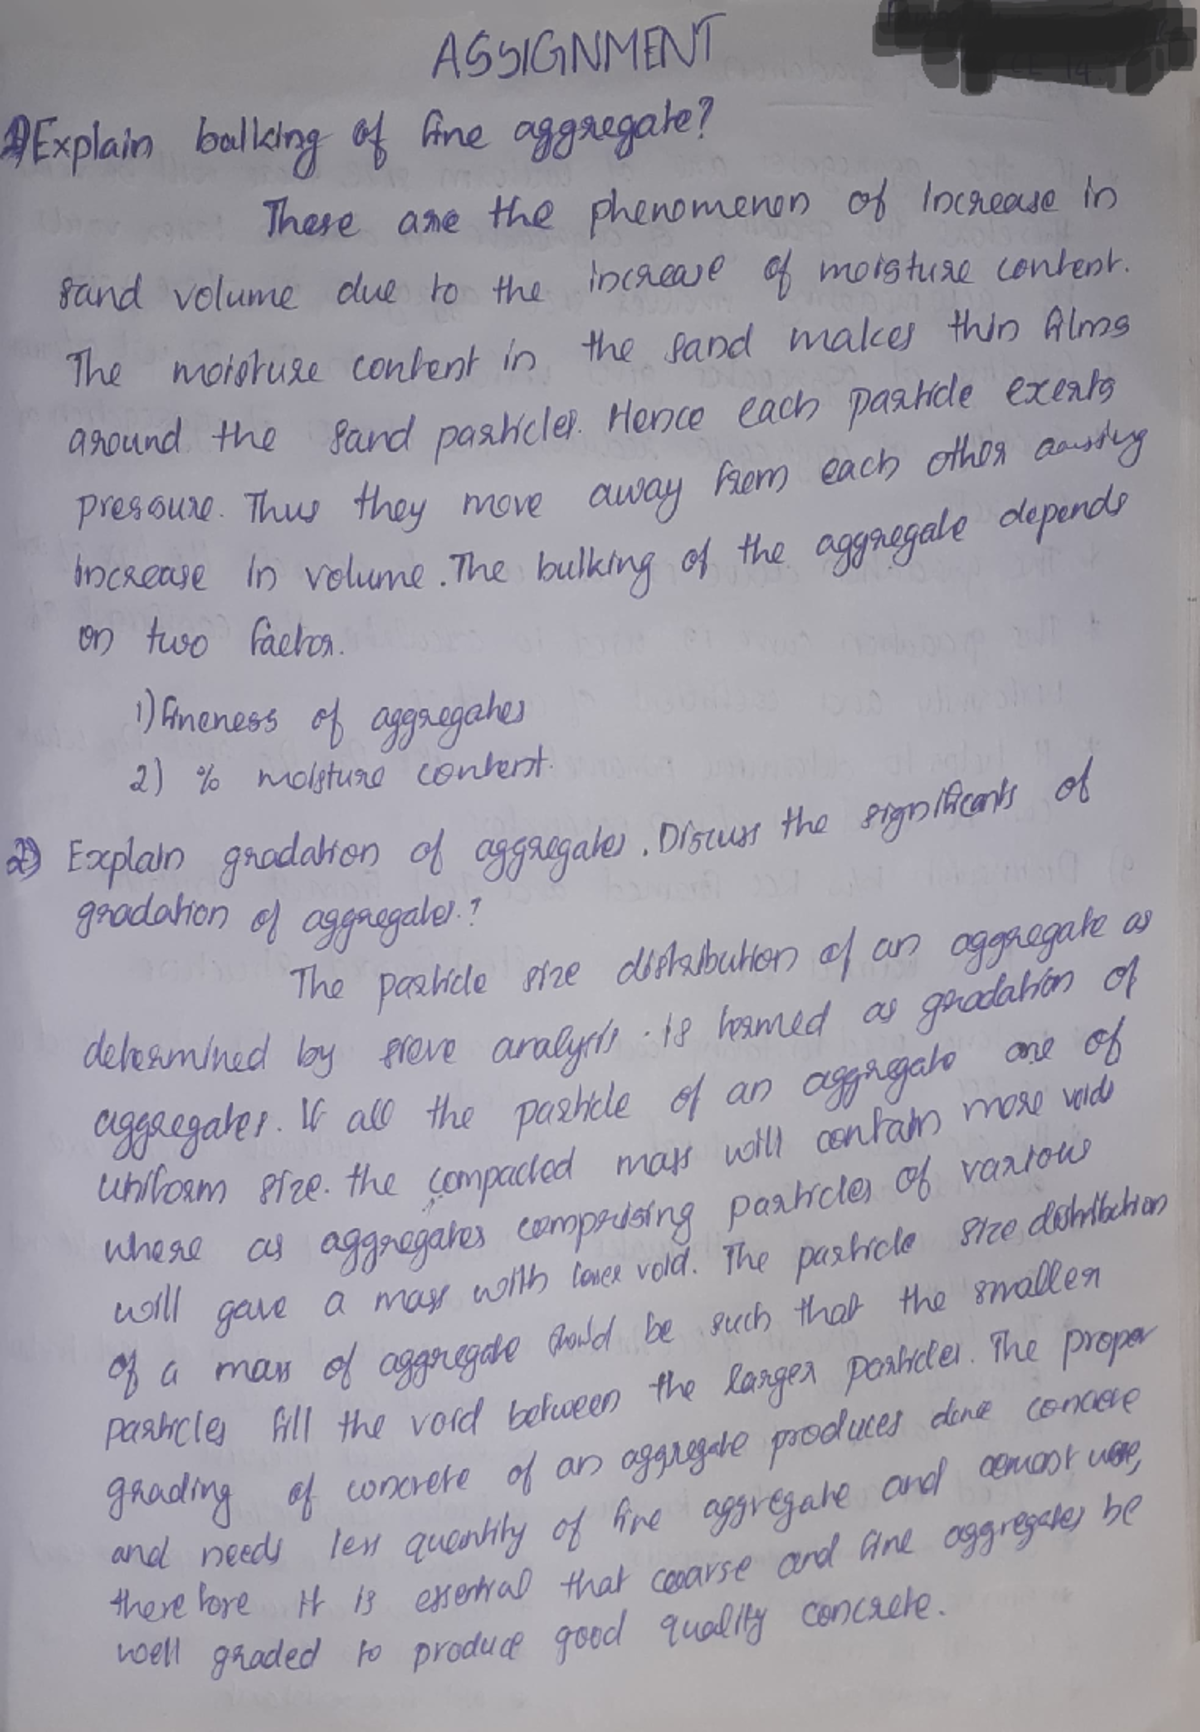 ASSIGNMENT
1) Explain bulking of fine aggregate?
These are the phenomenon of increase in
sand volume due to the increase of moisture content.
The moisture content in the sand makes thin films
around the sand particles. Hence each particle exerts
pressure. Thus they move away from each other causing
increase in volume. The bulking of the aggregate depends
on two factor.
1) fineness of aggregates
2) % moisture content.
2) Explain gradation of aggregates. Discuss the significants of
gradation of aggregates.?
The particle size distribution of an aggregate as
determined by sieve analysis is termed as gradation of
aggregates. If all the particle of an aggregate are of
uniform size. the compacted mass will contain more voids
where as aggregates comprising particles of various
will gave a mass with lower void. The particle size distribution
of a mass of aggregate should be such that the smaller
particles fill the void between the larger particles. The proper
grading of concrete of an aggregate produces concrete
and needs less quantity of fine aggregate and
therefore it is essential that coarse and fine aggregates be
well graded to produce good quality concrete.